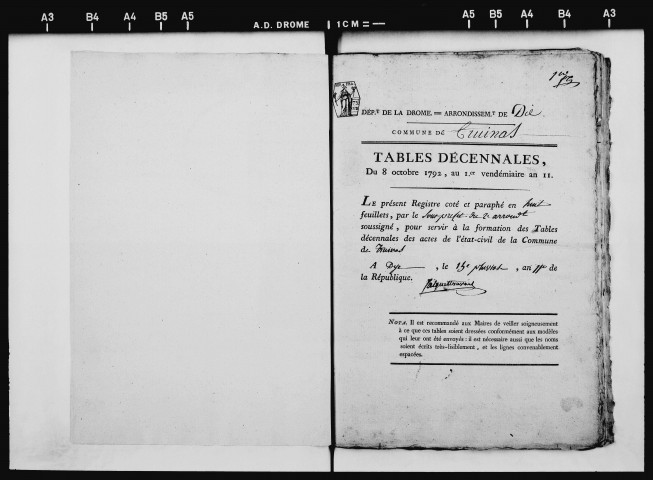 A3 B4 A4 B5 A5 A.D. DROME 1 CM A5 B5 A4 B4 A3
DÉP.T DE LA DROME. = ARRONDISSEM.T DE Die
COMMUNE DE Truinas
TABLES DÉCENNALES,
Du 8 octobre 1792, au 1.er vendémiaire an 11.
LE présent Registre coté et paraphé en huit
feuillets, par le Sous-préfet du 2e arrondt
soussigné, pour servir à la formation des Tables
décennales des actes de l'état-civil de la Commune
de Truinas
A Dye, le 15e pluviose, an 11e de
la République.
NOTA. Il est recommandé aux Maires de veiller soigneusement
à ce que ces tables soient dressées conformément aux modèles
qui leur ont été envoyés : il est nécessaire aussi que les noms
soient écrits très-lisiblement, et les lignes convenablement
espacées.